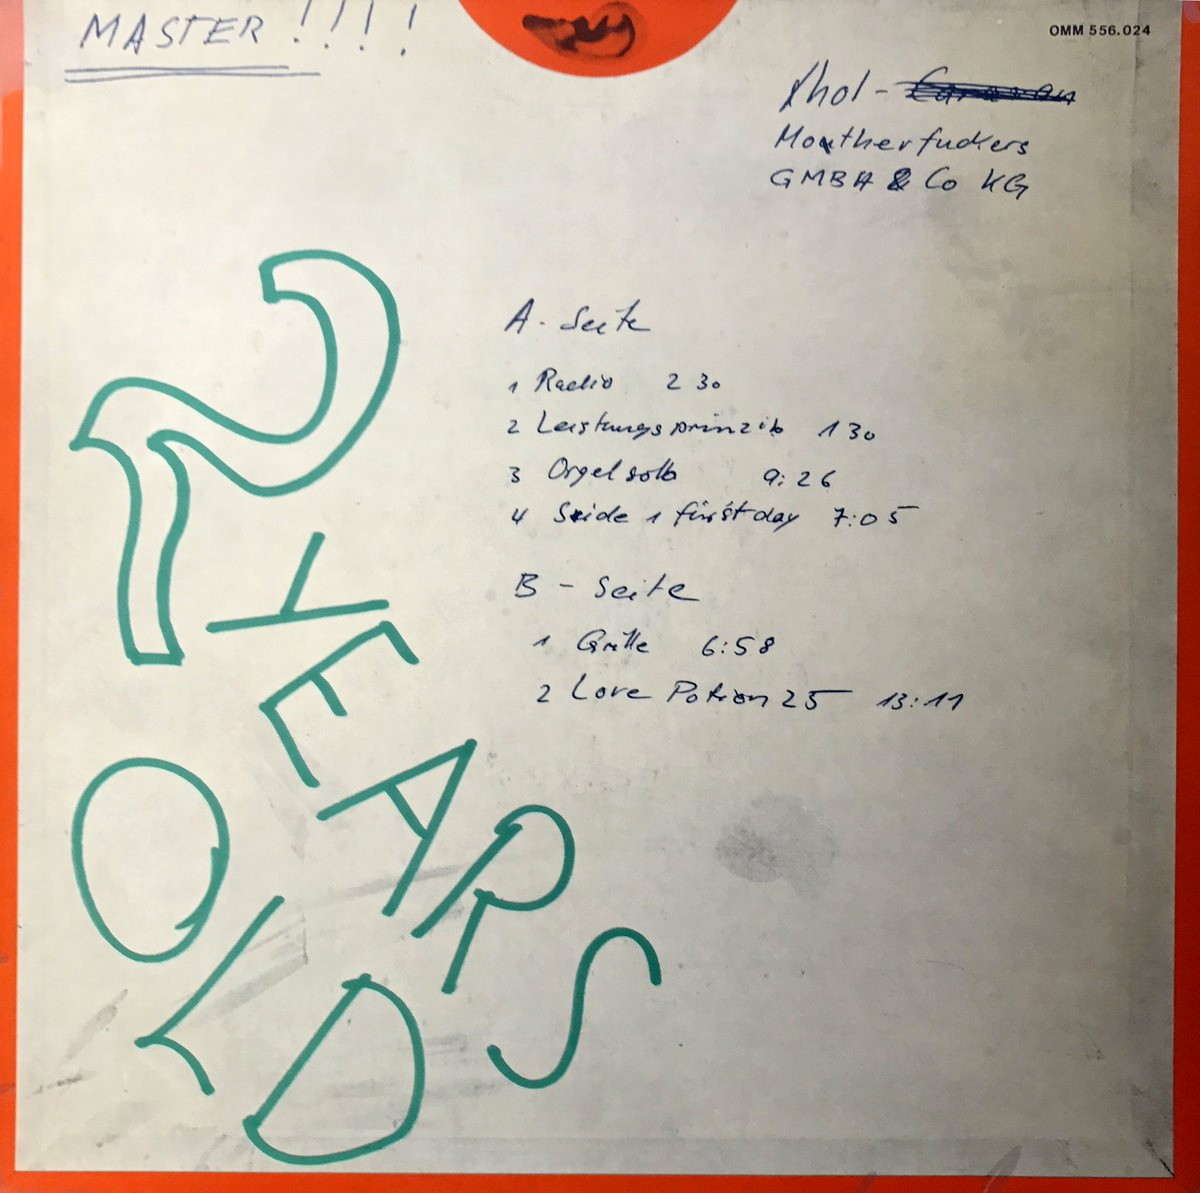 MASTER !!!!
OMM 556.024
Xhol - Caravan
Moatherfuckers
GMBH & Co KG
A - Seite
1 Radio 2 30
2 Leistungsprinzip 1 30
3 Orgelsolo 9:26
4 Side 1 first day 7:05
B - Seite
1 Grille 6:58
2 Love Potion 25 13:11
2 YEARS
OLD